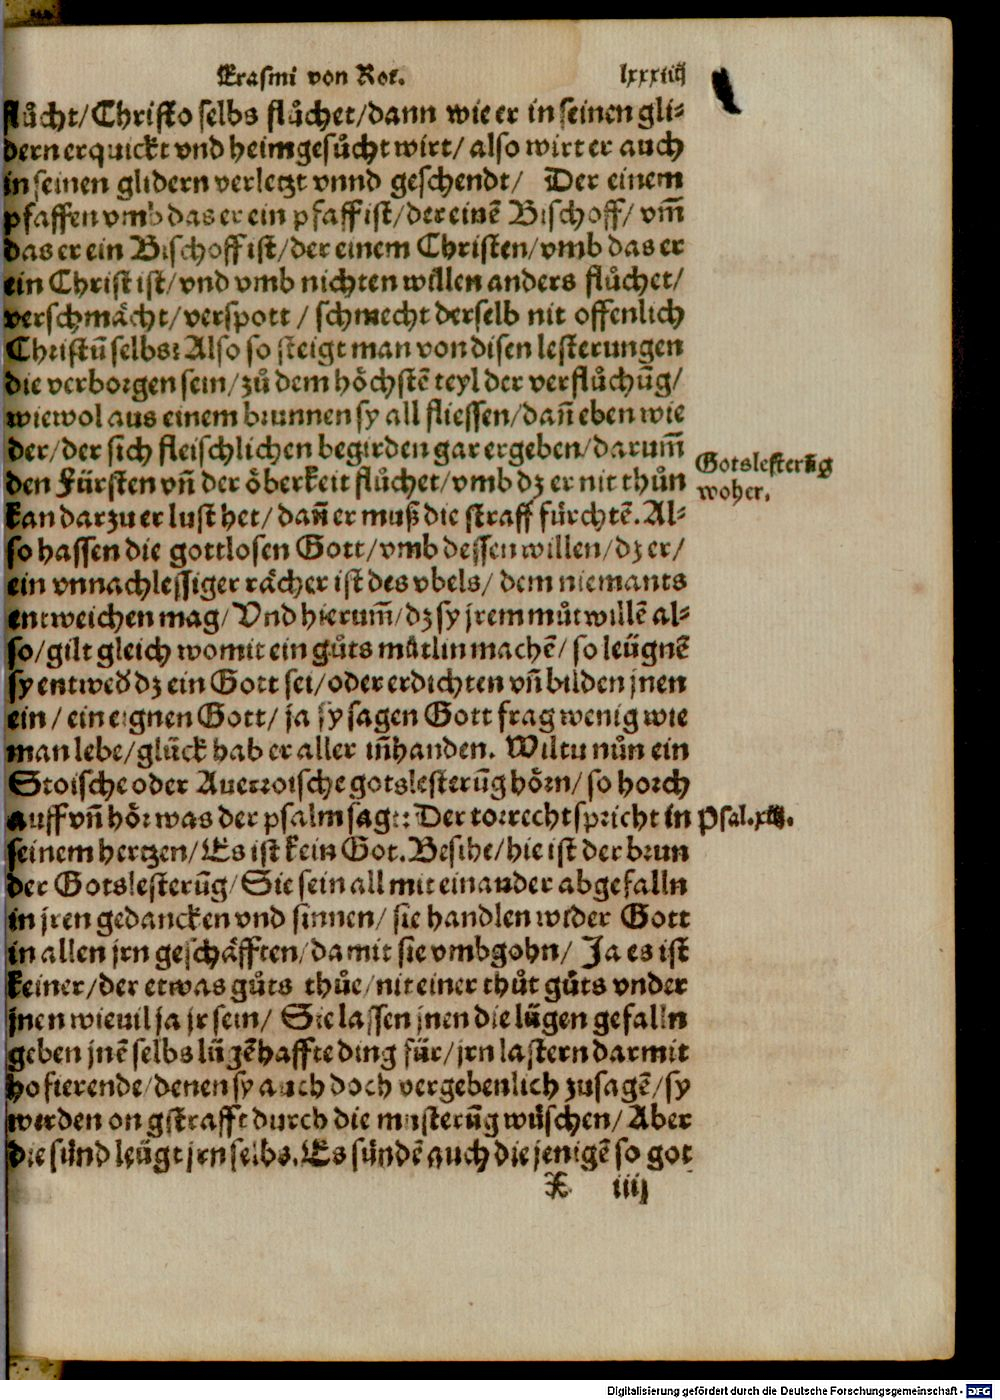 Erasmi von Rot. lxxxiiij
flůcht/Christo selbs flůchet/dann wie er in seinen gli⸗
dern erquickt vnd heimgesůcht wirt/ also wirt er auch
in seinen glidern verletzt vnnd geschendt/ Der einem
pfaffen vmb das er ein pfaff ist/der einē Bischoff/ vm̄
das er ein Bischoff ist/der einem Christen/vmb das er
ein Christ ist/vnd vmb nichten willen anders flůchet/
verschmächt/verspott / schmecht derselb nit offenlich
Christū selbs: Also so steigt man von disen lesterungen
die verborgen sein/zů dem höchstē teyl der verflůchūg/
wiewol aus einem brunnen sy all fliessen/dañ eben wie
der/der sich fleischlichen begirden gar ergeben/darum̄
den Fürsten vñ der öberkeit flůchet/vmb dz er nit thůn
kan darzu er lust het/ dañ er muß die straff fürchtē. Al⸗
so hassen die gottlosen Gott/vmb dessen willen/dz er/
ein vnnachlessiger rächer ist des vbels/ dem niemants
entweichen mag/ Vnd hierum̄/dz sy jrem můtwillē al⸗
so/gilt gleich womit ein gůts mütlin machē/ so leügnē
sy entweð dz ein Gott sei/oder erdichten vñ bilden jnen
ein/ ein eignen Gott/ ja sy sagen Gott frag wenig wie
man lebe/glück hab er aller iñhanden. Wiltu nůn ein
Stoische oder Auerroische gotslesterūg hörn/ so horch
auff vñ hör was der psalm sagt: Der torrecht spricht in
seinem hertzen/ Es ist kein Got. Besihe/hie ist der brun
der Gotslesterūg/Sie sein all mit einander abgefalln
in jren gedancken vnd sinnen/ sie handlen wider Gott
in allen jrn geschäfften/damit sie vmbgohn/ Ja es ist
keiner/der etwas gůts thůe/nit einer thůt gůts vnder
jnen wieuil ja jr sein/ Sie lassen jnen die lügen gefalln
geben jnē selbs lügēhaffte ding für/jrn lastern darmit
hofierende/denen sy auch doch vergebenlich zusagē/sy
werden on gstrafft durch die musterūg wüschen/ Aber
die sünd leügt jrn selbs. Es sündē auch die jenigē so got
X iiij
Gotslesterūg
woher.
Psal.xiij.
Digitalisierung gefördert durch die Deutsche Forschungsgemeinschaft - DFG